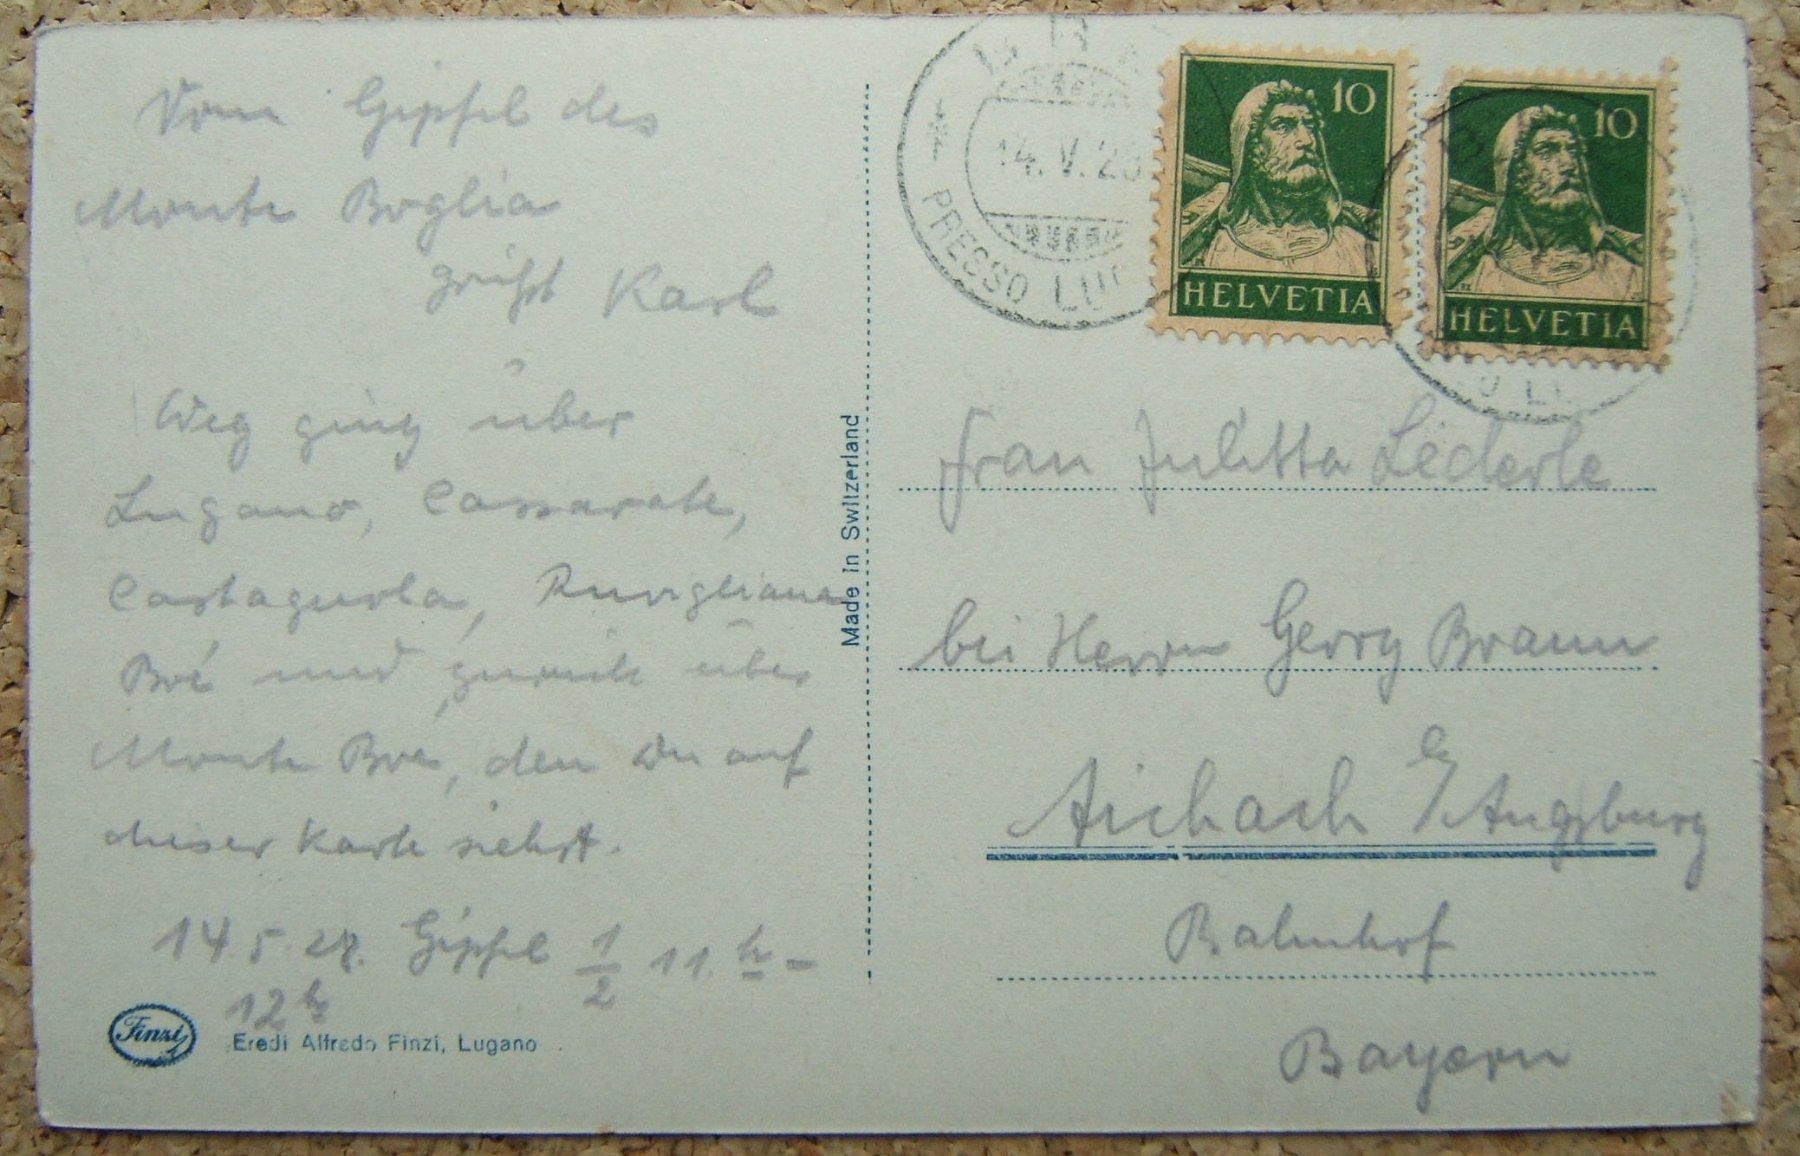 Vom Gipfel des
Monte Boglia
grüßt Karl
Weg ging über
Lugano, Cassarate,
Castagnola, Ruvigliana
Brè und zurück über
Monte Brè, den Du auf
dieser Karte siehst.
14.5.28. Gipfel 1/2 11 h –
12 h
Finzi
Eredi Alfredo Finzi, Lugano
Made in Switzerland
14. V. 28
PRESSO LUG
10
HELVETIA
10
HELVETIA
Frau Julitta Lederle
bei Herrn Georg Braun
Aichach b/Augsburg
Bahnhof
Bayern